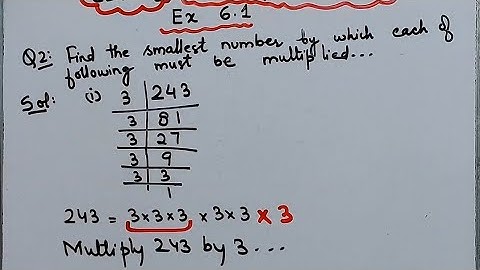 Ex 6.1
Q2: Find the smallest number by which each of
following must be multiplied...
Sol: (i) 3 | 243
3 | 81
3 | 27
3 | 9
3 | 3
1
243 = 3×3×3 × 3×3 × 3
Multiply 243 by 3...